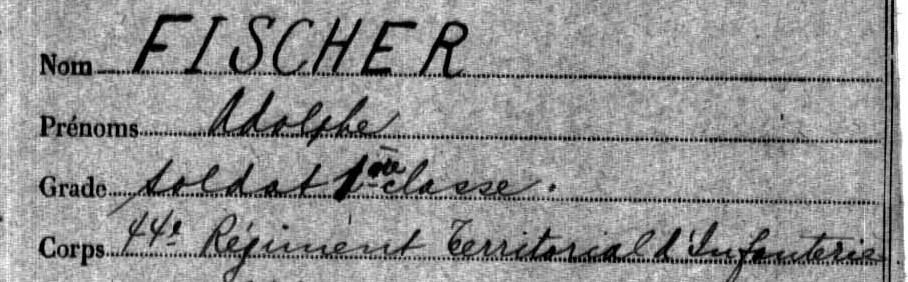 Nom FISCHER
Prénoms Adolphe
Grade soldat 1ère classe.
Corps 44e Régiment Territorial d'Infanterie